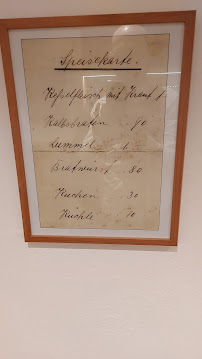 Speisekarte.
Kesselfleisch mit Kraut 1
Kalbsbraten 90
Lummel 1
Bratwurst 80
Kuchen 30
Küchle 10